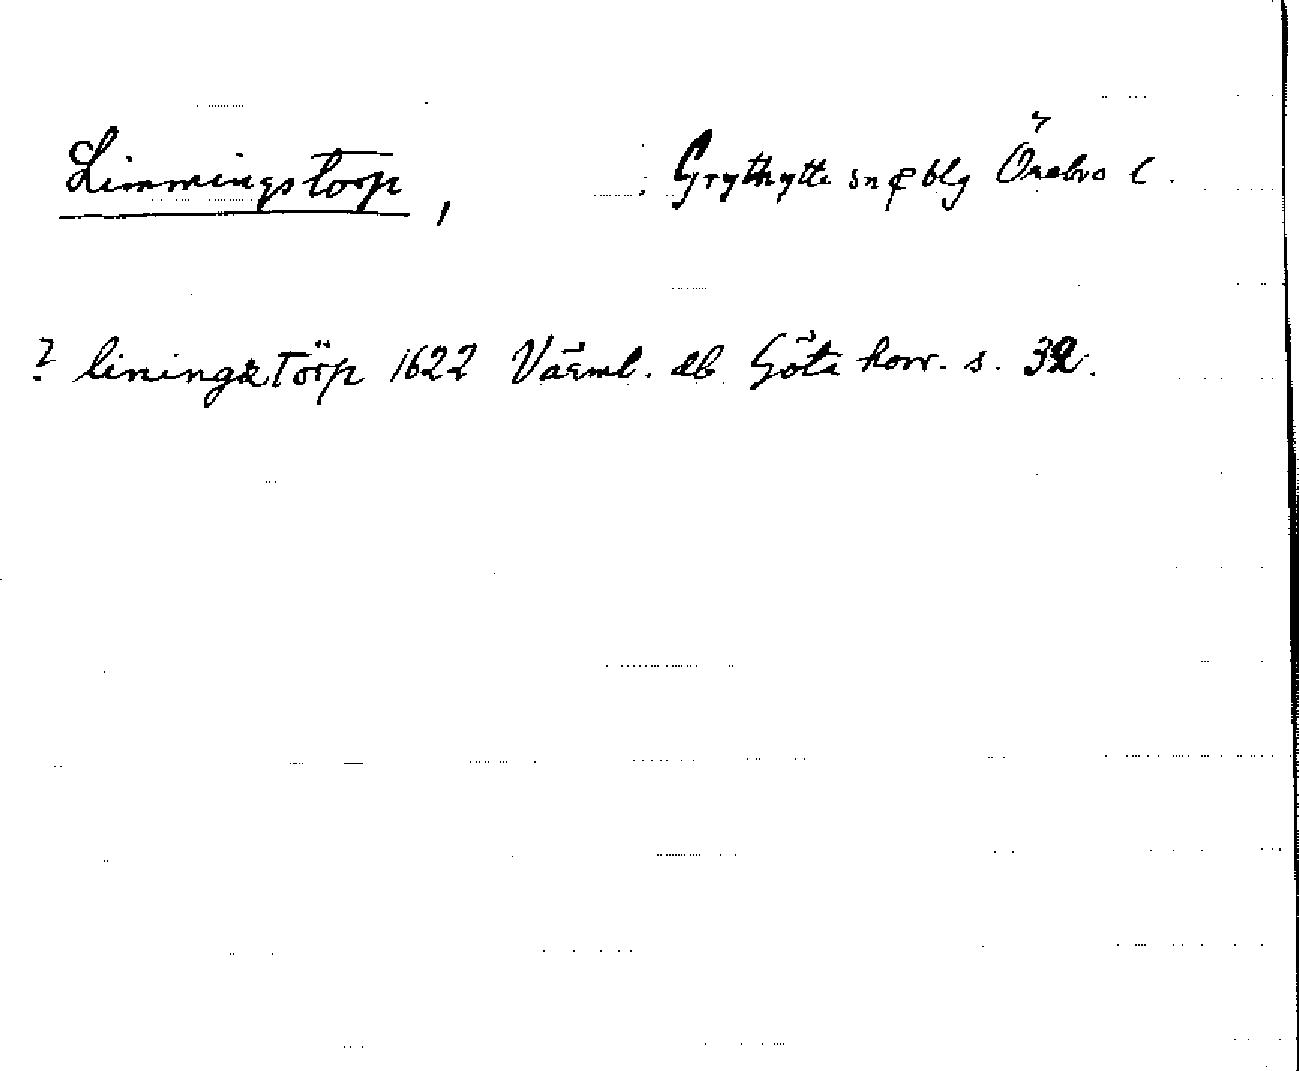 Limmingstorp, Grythytte sn & blg Örebro l.
? liningztörp 1622 Värml. db Göta horr. s. 32.